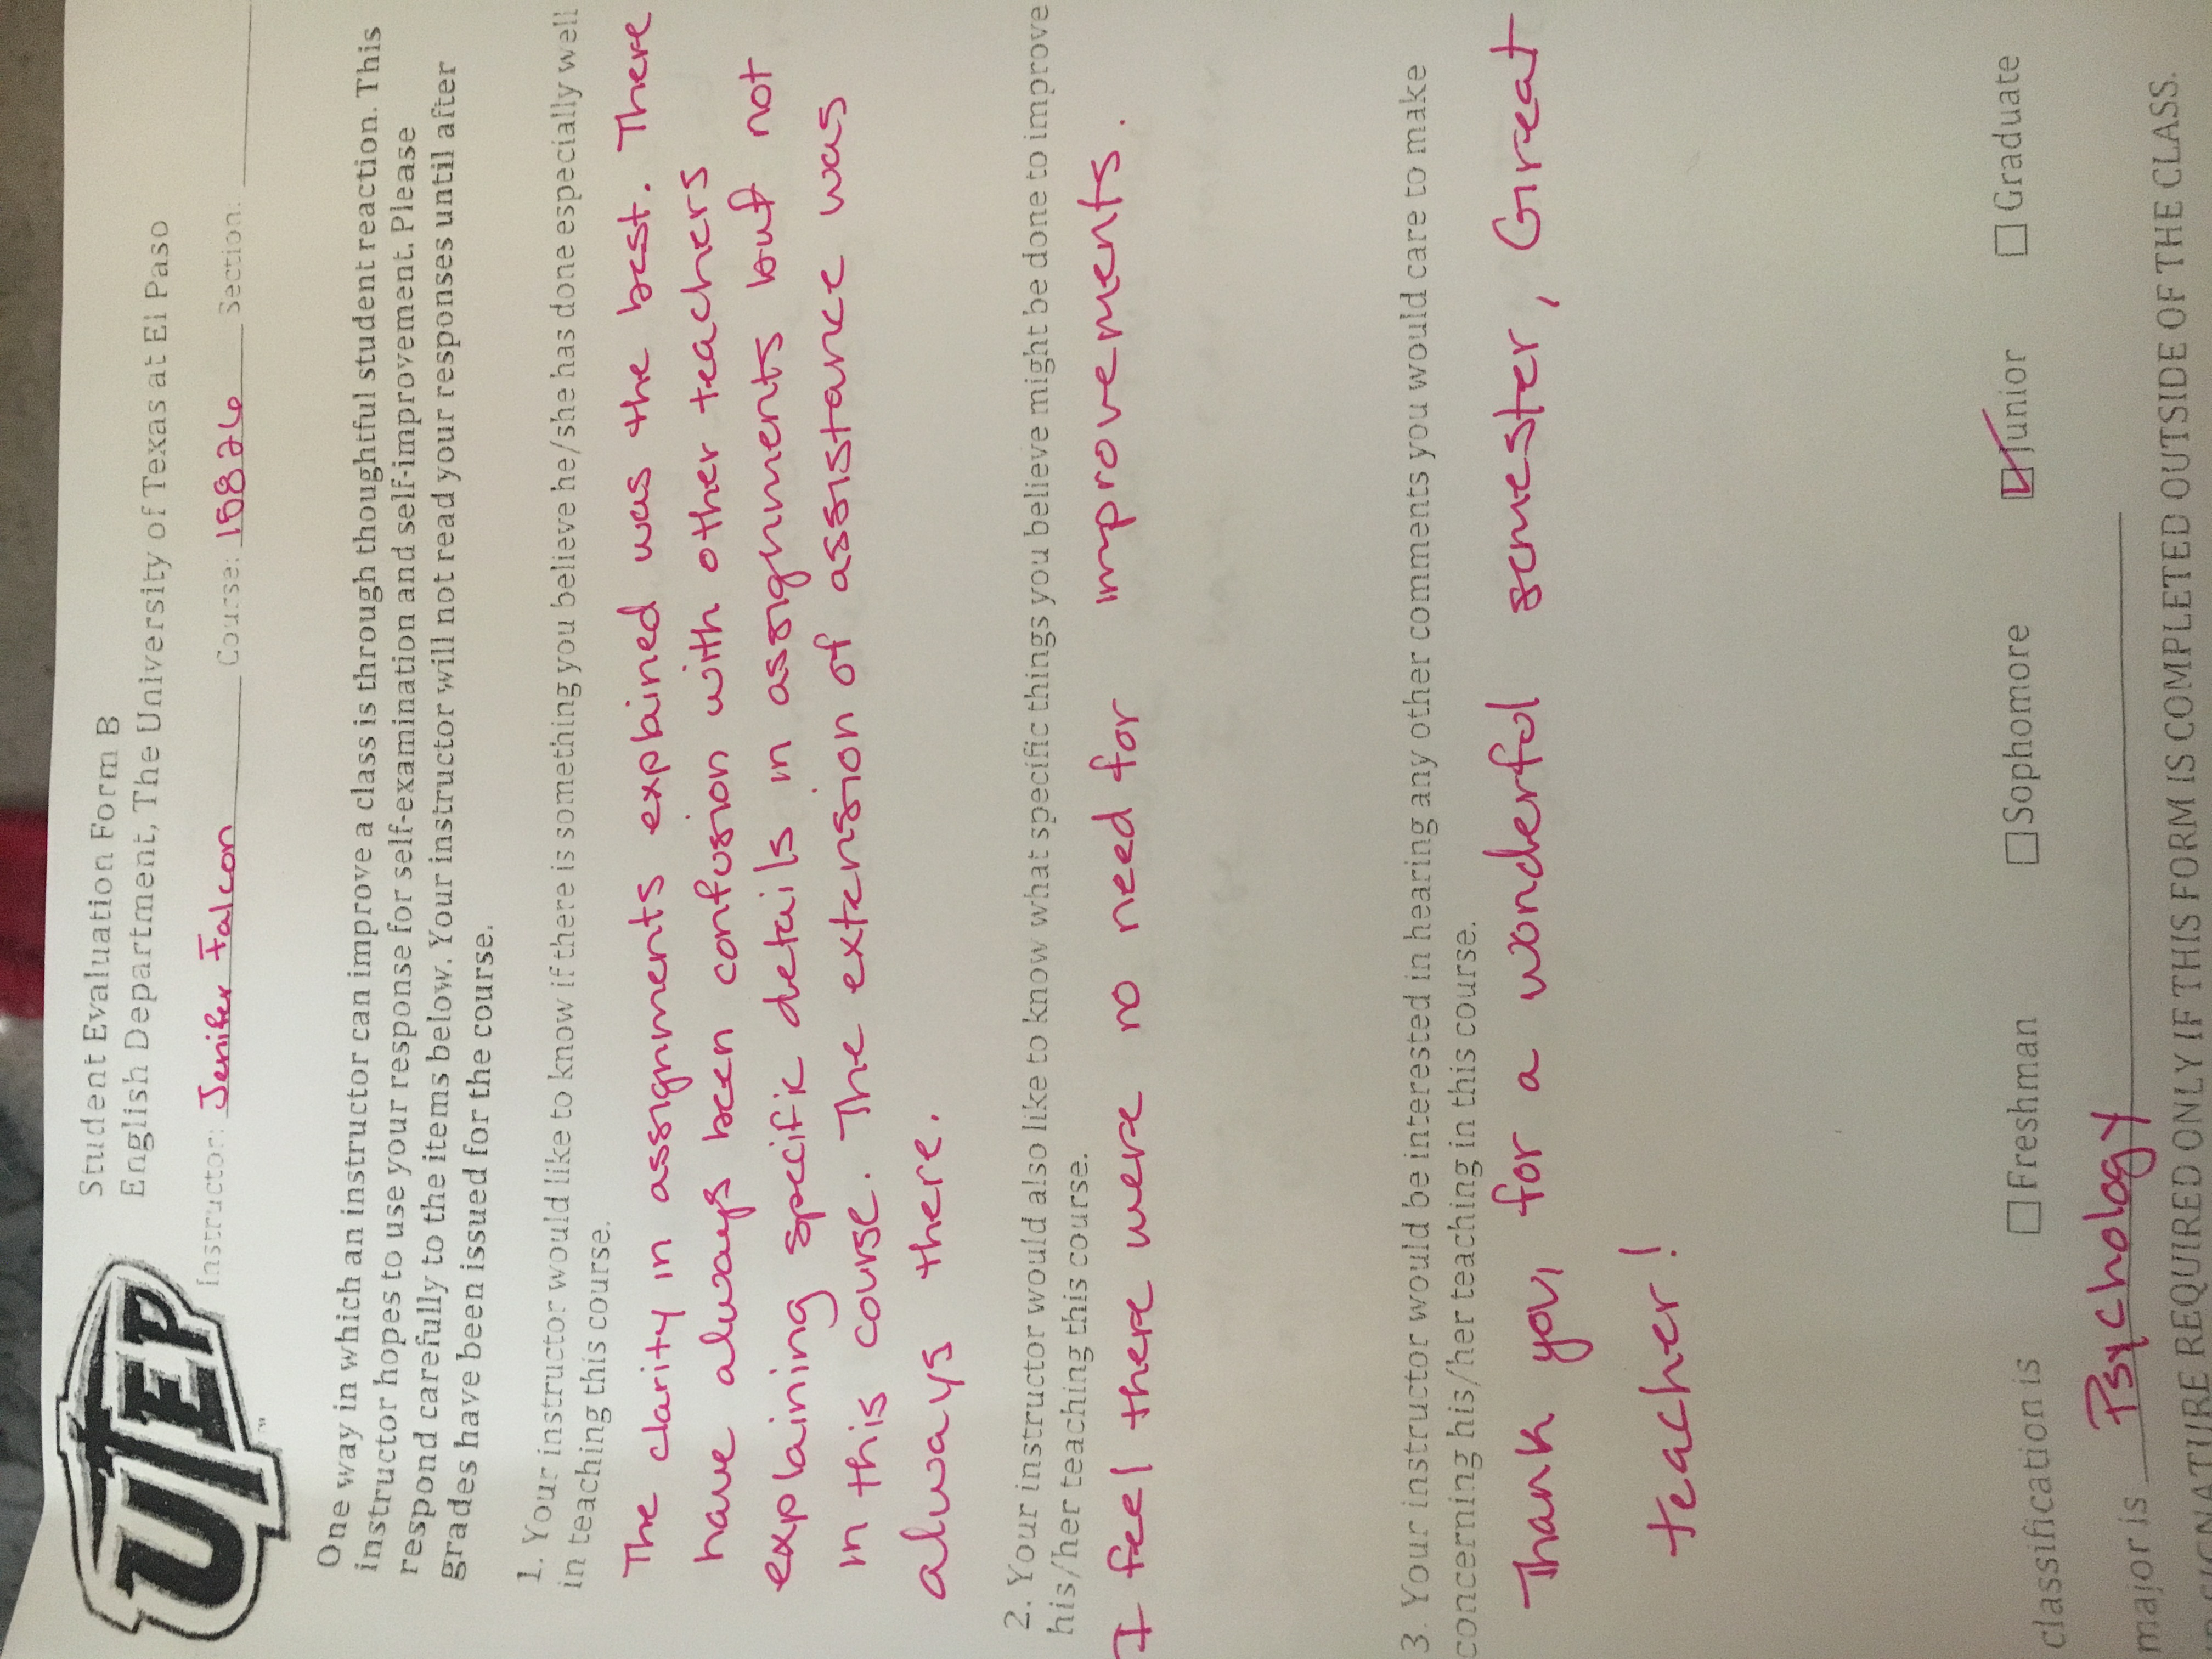 UTEP
TM
Student Evaluation Form B
English Department, The University of Texas at El Paso
Instructor: Jenifer Falcon Course: 15826 Section:
One way in which an instructor can improve a class is through thoughtful student reaction. This
instructor hopes to use your response for self-examination and self-improvement. Please
respond carefully to the items below. Your instructor will not read your responses until after
grades have been issued for the course.
1. Your instructor would like to know if there is something you believe he/she has done especially well
in teaching this course.
The clarity in assignments explained was the best. There
have always been confusion with other teachers
explaining specific details in assignments but not
in this course. The extension of assistance was
always there.
2. Your instructor would also like to know what specific things you believe might be done to improve
his/her teaching this course.
I feel there were no need for improvements.
3. Your instructor would be interested in hearing any other comments you would care to make
concerning his/her teaching in this course.
Thank you, for a wonderful semester, Great
teacher!
classification is ☐Freshman ☐Sophomore ☑Junior ☐Graduate
major is Psychology
SIGNATURE REQUIRED ONLY IF THIS FORM IS COMPLETED OUTSIDE OF THE CLASS.